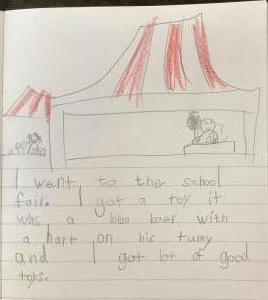 I went to the school
fair. I got a toy it
was a bloo baer with
a hart on hic tumy
and I got lot of good
toys.